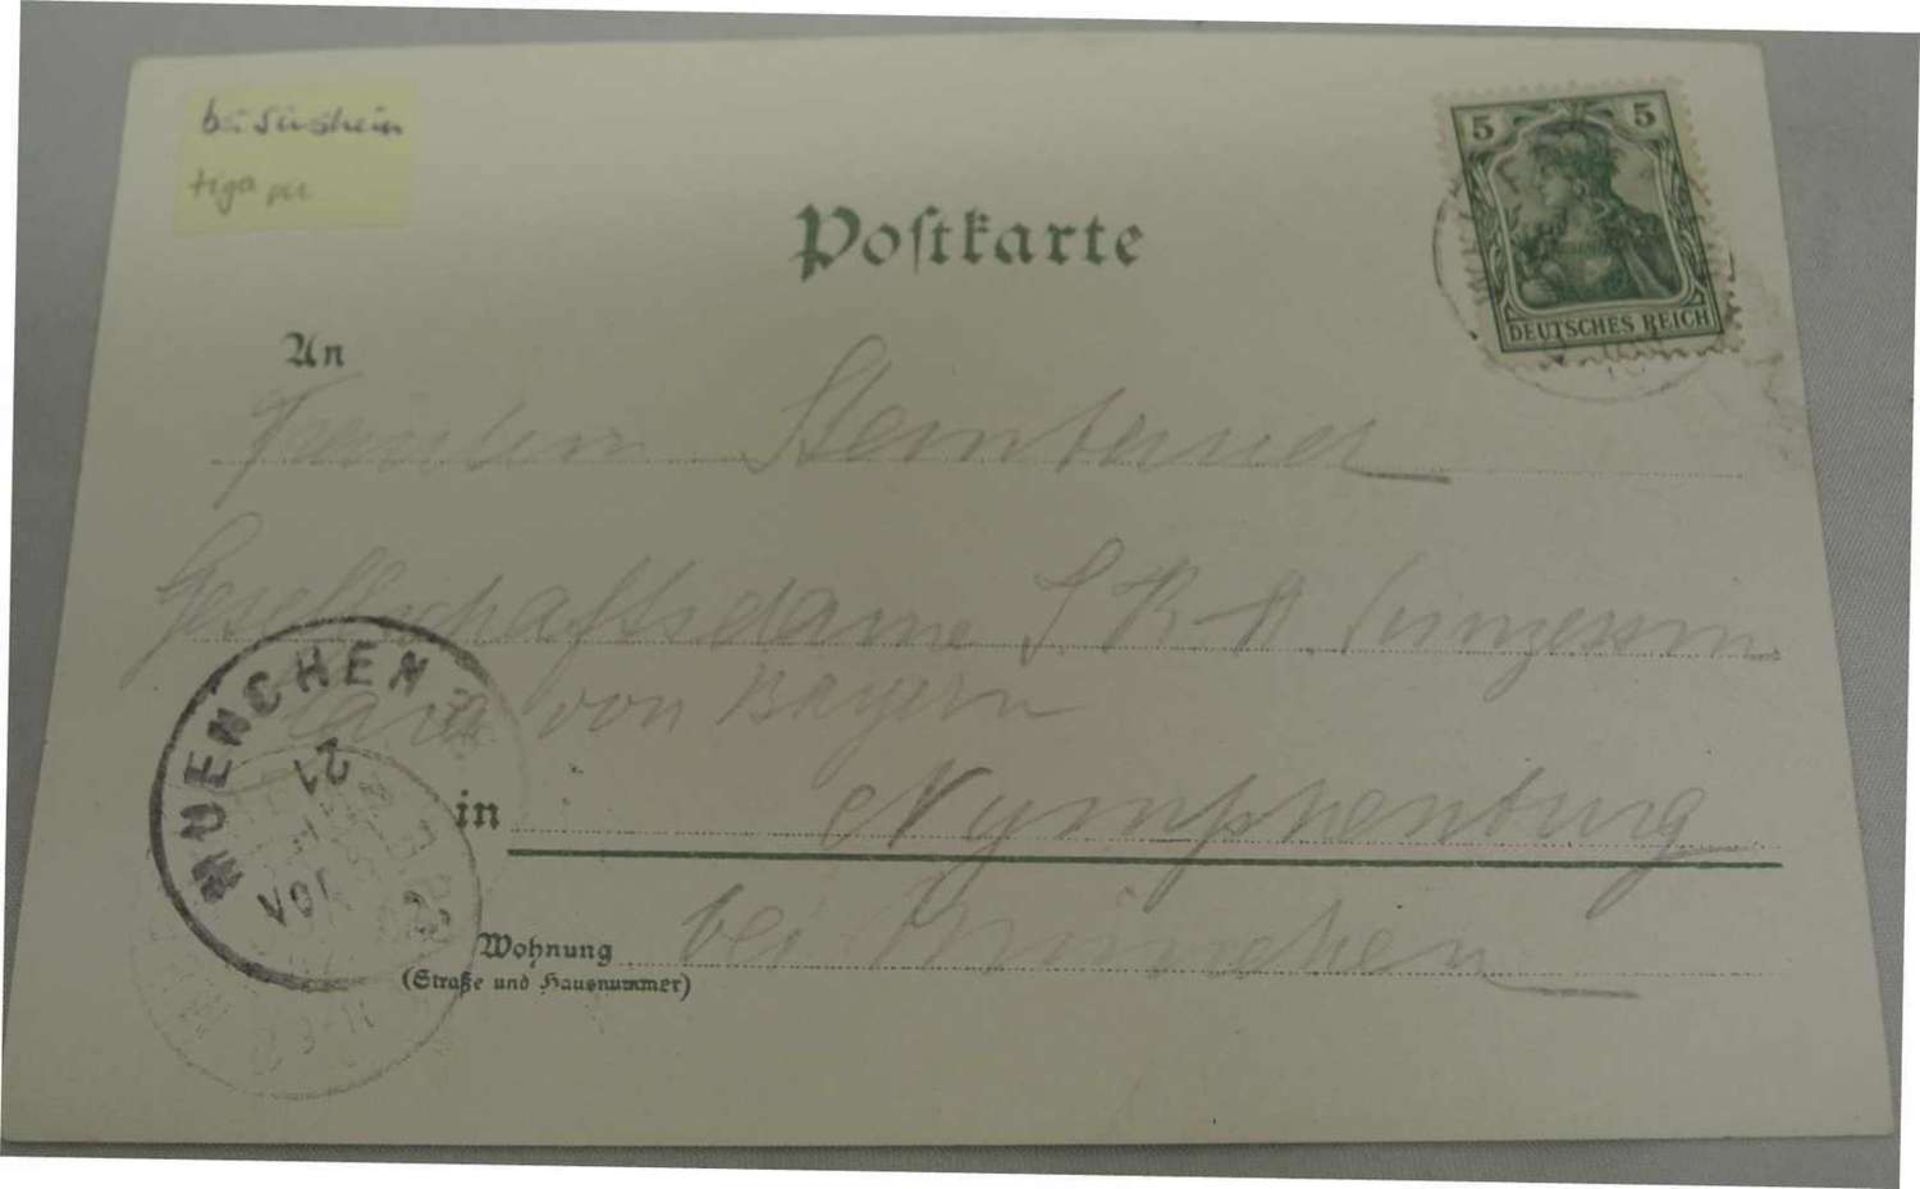 5 5
Postkarte
DEUTSCHES REICH
An
Fräulein Steinbauer
Gesellschaftsdame I. K. H. Prinzessin
Clara von Bayern
MUENCHEN
21
NOV
in Nymphenburg
Wohnung bei München
(Straße und Hausnummer)